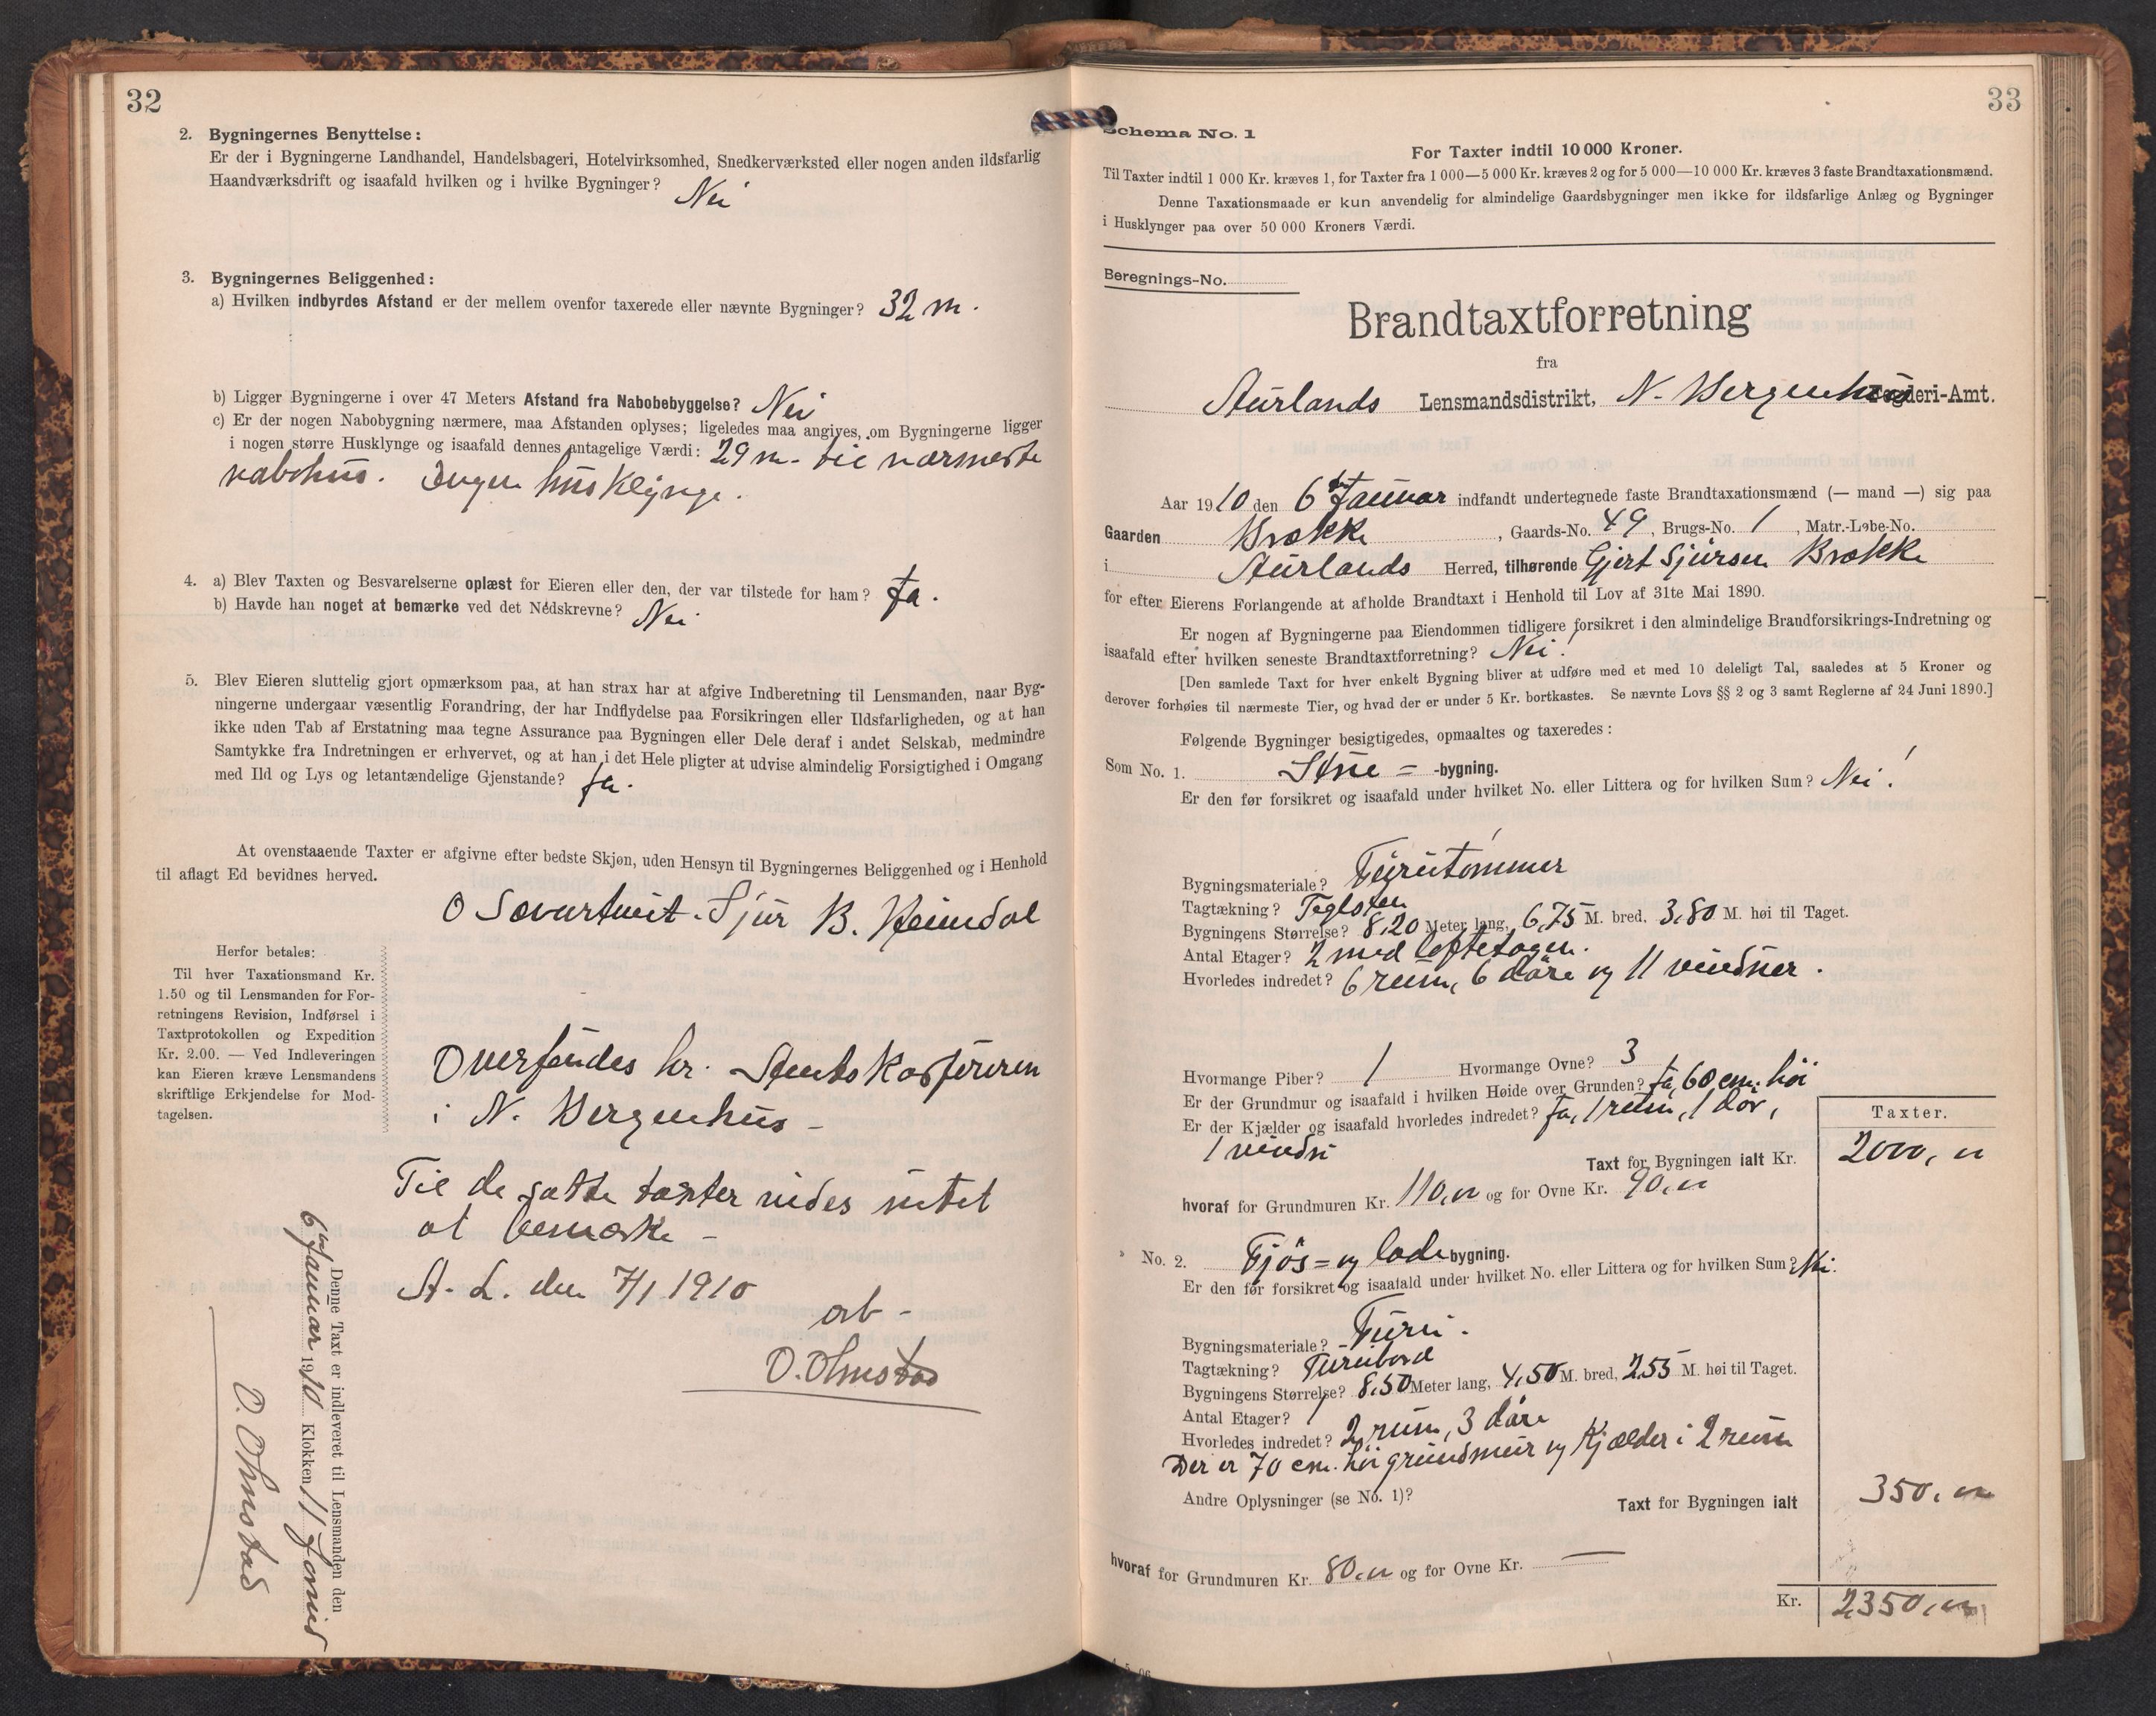 32
2. Bygningernes Benyttelse:
Er der i Bygningerne Landhandel, Handelsbageri, Hotelvirksomhed, Snedkerværksted eller nogen anden ildsfarlig
Haandværksdrift og isaafald hvilken og i hvilke Bygninger? Nei
3. Bygningernes Beliggenhed:
a) Hvilken indbyrdes Afstand er der mellem ovenfor taxerede eller nævnte Bygninger? 32 m.
b) Ligger Bygningerne i over 47 Meters Afstand fra Nabobebyggelse? Nei
c) Er der nogen Nabobygning nærmere, maa Afstanden oplyses; ligeledes maa angives, om Bygningerne ligger
i nogen større Husklynge og isaafald dennes antagelige Værdi: 29 m. til nærmeste
nabohus. Ingen husklynge.
4. a) Blev Taxten og Besvarelserne oplæst for Eieren eller den, der var tilstede for ham? Ja.
b) Havde han noget at bemærke ved det Nedskrevne? Nei
5. Blev Eieren sluttelig gjort opmærksom paa, at han strax har at afgive Indberetning til Lensmanden, naar Byg-
ningerne undergaar væsentlig Forandring, der har Indflydelse paa Forsikringen eller Ildsfarligheden, og at han
ikke uden Tab af Erstatning maa tegne Assurance paa Bygningen eller Dele deraf i andet Selskab, medmindre
Samtykke fra Indretningen er erhvervet, og at han i det Hele pligter at udvise almindelig Forsigtighed i Omgang
med Ild og Lys og letantændelige Gjenstande? Ja.
At ovenstaaende Taxter er afgivne efter bedste Skjøn, uden Hensyn til Bygningernes Beliggenhed og i Henhold
til aflagt Ed bevidnes herved.
O Sivertuit. Sjur B. Heimdal
Herfor betales:
Til hver Taxationsmand Kr.
1.50 og til Lensmanden for For-
retningens Revision, Indførsel i
Taxtprotokollen og Expedition
Kr. 2.00. — Ved Indleveringen
kan Eieren kræve Lensmandens
skriftlige Erkjendelse for Mod-
tagelsen.
Oversendes hr. Amtskassereren
i N. Bergenhus -
Til de satte taxter vides intet
at bemærke -
A. L. den 7/1 1910
arb -
O. Ohnstad
Denne Taxt er indleveret til Lensmanden den
6te Januar 1910 Klokken 11 formid
O. Ohnstad
33
Schema No. 1
For Taxter indtil 10 000 Kroner.
Til Taxter indtil 1 000 Kr. kræves 1, for Taxter fra 1 000—5 000 Kr. kræves 2 og for 5 000—10 000 Kr. kræves 3 faste Brandtaxationsmænd.
Denne Taxationsmaade er kun anvendelig for almindelige Gaardsbygninger men ikke for ildsfarlige Anlæg og Bygninger
i Husklynger paa over 50 000 Kroners Værdi.
Beregnings-No.
Brandtaxtforretning
fra
Aurlands Lensmandsdistrikt, N. Bergenhus Fogderi-Amt.
Aar 1910 den 6te Januar indfandt undertegnede faste Brandtaxationsmænd (— mand —) sig paa
Gaarden Brække, Gaards-No. 49, Brugs-No. 1, Matr.-Løbe-No.
i Aurlands Herred, tilhørende Gjert Sjursen Brække
for efter Eierens Forlangende at afholde Brandtaxt i Henhold til Lov af 31te Mai 1890.
Er nogen af Bygningerne paa Eiendommen tidligere forsikret i den almindelige Brandforsikrings-Indretning og
isaafald efter hvilken seneste Brandtaxtforretning? Nei!
[Den samlede Taxt for hver enkelt Bygning bliver at udføre med et med 10 deleligt Tal, saaledes at 5 Kroner og
derover forhøies til nærmeste Tier, og hvad der er under 5 Kr. bortkastes. Se nævnte Lovs §§ 2 og 3 samt Reglerne af 24 Juni 1890.]
Følgende Bygninger besigtigedes, opmaaltes og taxeredes:
Som No. 1. Stue = -bygning.
Er den før forsikret og isaafald under hvilket No. eller Littera og for hvilken Sum? Nei!
Bygningsmateriale? Furutømmer
Tagtækning? Teglsten
Bygningens Størrelse? 8,20 Meter lang, 6,75 M. bred, 3,80 M. høi til Taget.
Antal Etager? 2 med loftetagen.
Hvorledes indredet? 6 rum, 6 døre og 11 vinduer.
Hvormange Piber? 1 Hvormange Ovne? 3
Er der Grundmur og isaafald i hvilken Høide over Grunden? Ja, 60 cm. høi
Er der Kjælder og isaafald hvorledes indredet? Ja, 1 rum, 1 dør,
1 vindu
Taxter.
Taxt for Bygningen ialt Kr. 2000,
hvoraf for Grundmuren Kr. 110, og for Ovne Kr. 90,
No. 2. Fjøs = og lade bygning.
Er den før forsikret og isaafald under hvilket No. eller Littera og for hvilken Sum? Nei.
Bygningsmateriale? Furu.
Tagtækning? Furubord
Bygningens Størrelse? 8,50 Meter lang, 4,50 M. bred, 2,55 M. høi til Taget.
Antal Etager? 1
Hvorledes indredet? 2 rum, 3 døre
Der er 70 cm. høi grundmur og Kjælder i 2 rum
Andre Oplysninger (se No. 1)? Taxt for Bygningen ialt 350,
hvoraf for Grundmuren Kr. 80, og for Ovne Kr. —
Kr. 2350,